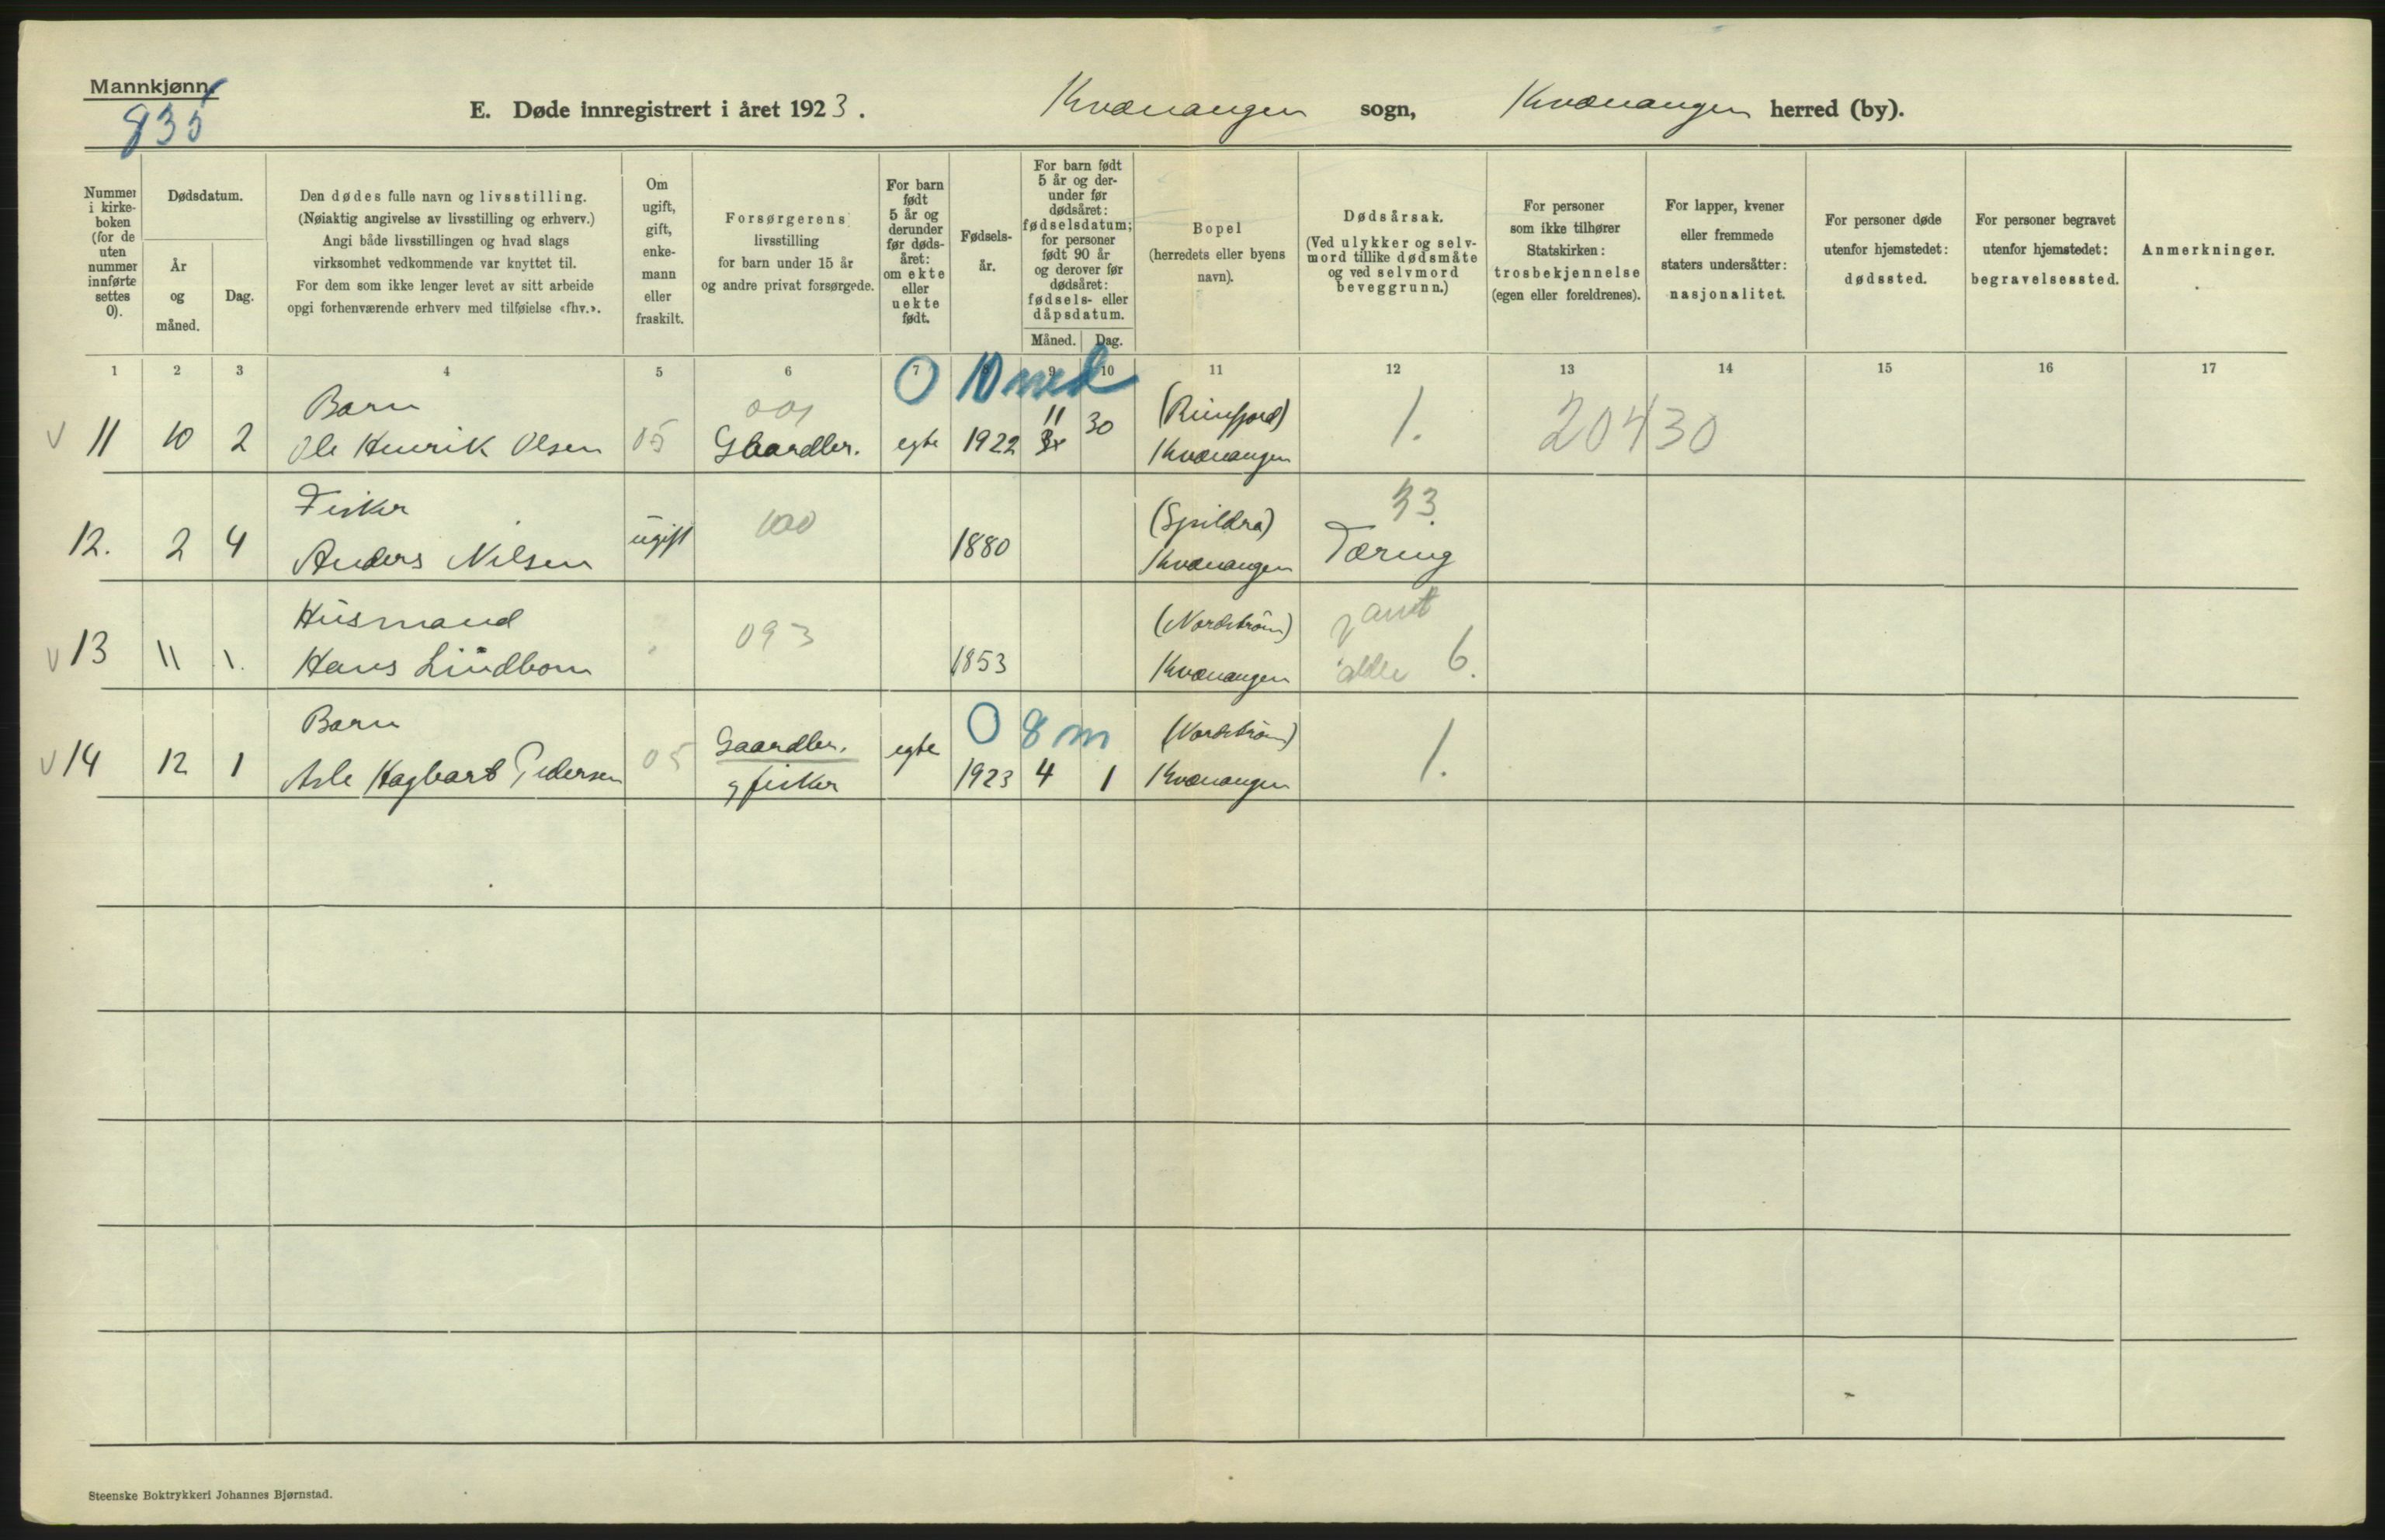 Mannkjønn.
835
E. Døde innregistrert i året 1923. Kvænangen sogn, Kvænangen herred (by).
Nummer i kirke- boken (for de uten nummer innførte settes 0).
Dødsdatum.
År og måned.
Dag.
Den dødes fulle navn og livsstilling.
(Nøiaktig angivelse av livsstilling og erhverv.)
Angi både livsstillingen og hvad slags
virksomhet vedkommende var knyttet til.
For dem som ikke lenger levet av sitt arbeide
opgi forhenværende erhverv med tilføielse «fhv.».
Om ugift, gift, enke- mann eller fraskilt.
Forsørgerens
livsstilling
for barn under 15 år
og andre privat forsørgede.
For barn født 5 år og derunder før døds- året: om ekte eller uekte født.
Fødsels- år.
For barn født 5 år og der- under før dødsåret: fødselsdatum; for personer født 90 år og derover før dødsåret: fødsels- eller dåpsdatum.
Måned. Dag.
Bopel
(herredets eller byens
navn).
Dødsårsak.
(Ved ulykker og selv-
mord tillike dødsmåte
og ved selvmord
beveggrunn.)
For personer
som ikke tilhører
Statskirken:
trosbekjennelse
(egen eller foreldrenes).
For lapper, kvener
eller fremmede
staters undersåtter:
nasjonalitet.
For personer døde
utenfor hjemstedet:
dødssted.
For personer begravet
utenfor hjemstedet:
begravelsessted.
Anmerkninger.
1 2 3 4 5 6 7 8 9 10 11 12 13 14 15 16 17
0 10 mnd
Barn 001 11 30
v 11 10 2 Ole Henrik Olsen 05 Gbardbr. egte 1922 Kvænangen 1. 20430
Fisker 100 (Spildra) 33.
12. 2 4 Anders Nilsen ugift 1880 Kvænangen Tæring
Husmand 093 (Nordstrøm)
v 13 11 1. Hans Lindbom 1853 Kvænangen alder 6.
Barn Gaardbr. egte 0 8 m (Nordstrøm)
v 14 12 1 Asle Hagbart Pedersen 05 g fisker 1923 4 1 Kvænangen 1.
Steenske Boktrykkeri Johannes Bjørnstad.